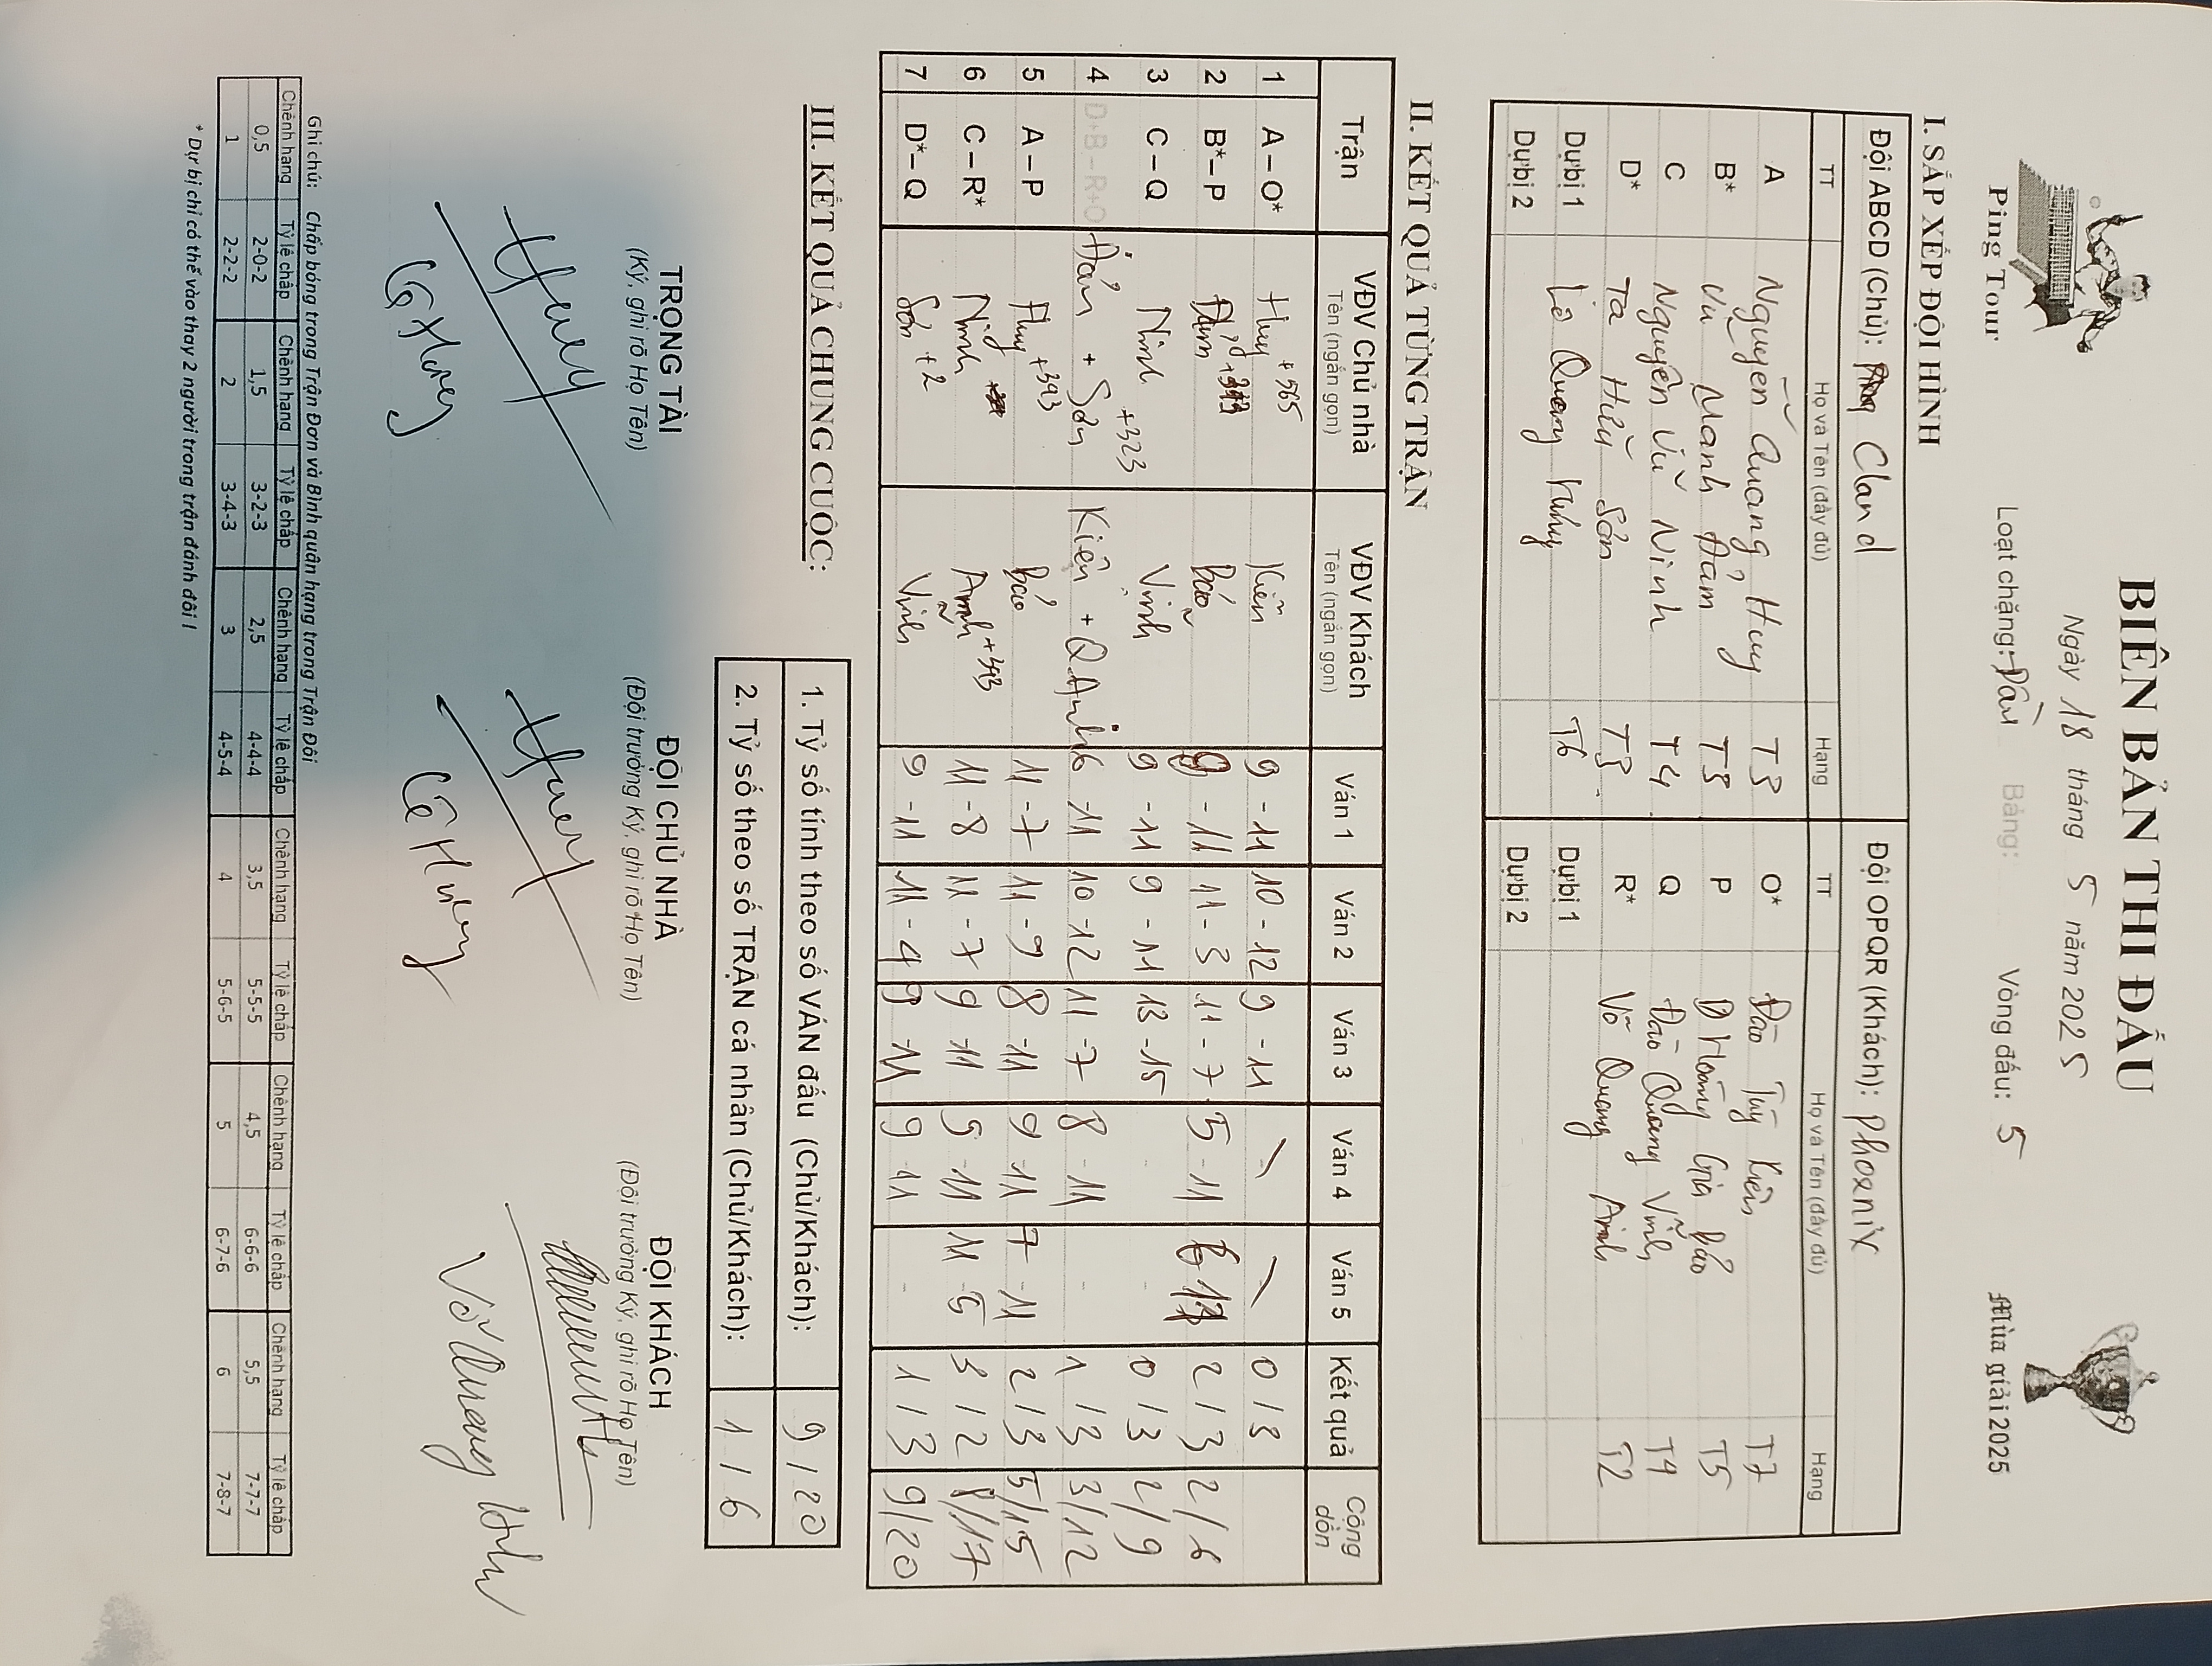 BIÊN BẢN THI ĐẤU
Ngày 18 tháng 5 năm 2025
Ping Tour
Loạt chặng: Vòng đấu: 5
Bảng:
Mùa giải 2025
I. SẮP XẾP ĐỘI HÌNH
Đội ABCD (Chủ): Clan d Đội OPQR (Khách): Phoenix
TT Họ và Tên (đầy đủ) Hạng TT Họ và Tên (đầy đủ) Hạng
A Nguyễn Quang Huy T3 O* Đào Tùng Kiên T7
B* Vũ Mạnh Đảm T3 P Đ Hoàng Gia Bảo T5
C Nguyễn Vũ Ninh T4 Q Đào Quang Vinh T4
D* Tạ Hữu Sơn T3 R* Võ Quang Anh T2
Dự bị 1 Lê Quang T6 Dự bị 1
Dự bị 2 Dự bị 2
II. KẾT QUẢ TỪNG TRẬN
Trận VĐV Chủ nhà VĐV Khách Ván 1 Ván 2 Ván 3 Ván 4 Ván 5 Kết quả Cộng dồn
Tên (ngắn gọn) Tên (ngắn gọn)
1 A – O* Huy +565 Kiên 9 - 11 10 - 12 9 - 11 0 / 3
2 B* – P Đảm Bảo 9 - 11 11 - 3 11 - 7 5 - 11 2 / 3 2 / 6
3 C – Q Ninh +323 Vinh 9 - 11 9 - 11 13 - 15 0 / 3 2 / 9
4 D+B – R+O Đảm + Sơn Kiên + Q.Anh 6 - 11 10 - 12 11 - 7 8 - 11 1 / 3 3 / 12
5 A – P Huy +343 Bảo 11 - 7 11 - 9 8 - 11 9 - 11 7 - 11 2 / 3 5 / 15
6 C – R* Ninh Anh +343 11 - 8 11 - 7 9 - 11 5 - 11 11 - 5 3 / 2 8 / 17
7 D* – Q Sơn +2 Vinh 9 - 11 11 - 4 9 - 11 9 - 11 1 / 3 9 / 20
III. KẾT QUẢ CHUNG CUỘC:
1. Tỷ số tính theo số VÁN đấu (Chủ/Khách): 9 / 20
2. Tỷ số theo số TRẬN cá nhân (Chủ/Khách): 1 / 6
TRỌNG TÀI ĐỘI CHỦ NHÀ ĐỘI KHÁCH
(Ký, ghi rõ Họ Tên) (Đội trưởng Ký, ghi rõ Họ Tên) (Đội trưởng Ký, ghi rõ Họ Tên)
Huy Huy
Võ Quang Anh
Ghi chú: Chấp bóng trong Trận Đơn và Bình quân hạng trong Trận Đôi
Chênh hạng Tỷ lệ chấp Chênh hạng Tỷ lệ chấp Chênh hạng Tỷ lệ chấp Chênh hạng Tỷ lệ chấp Chênh hạng Tỷ lệ chấp Chênh hạng Tỷ lệ chấp
0,5 2-0-2 1,5 3-2-3 2,5 4-4-4 3,5 5-5-5 4,5 6-6-6 5,5 7-7-7
1 2-2-2 2 3-4-3 3 4-5-4 4 5-6-5 5 6-7-6 6 7-8-7
* Dự bị chỉ có thể vào thay 2 người trong trận đánh đôi !